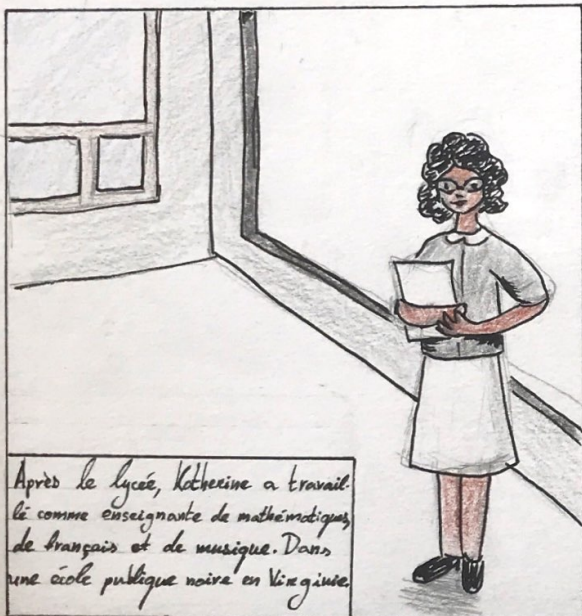 Après le lycée, Katherine a travail-
lé comme enseignante de mathématiques,
de français et de musique. Dans
une école publique noire en Virginie.